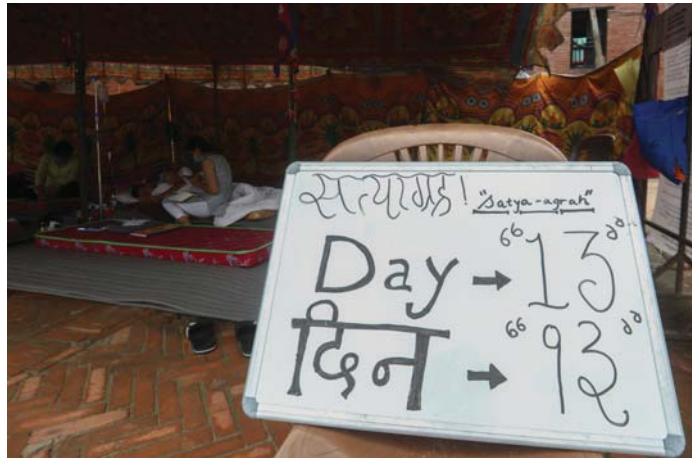 सत्याग्रह! "satya-agrah"
Day → "13"
दिन → "१३"